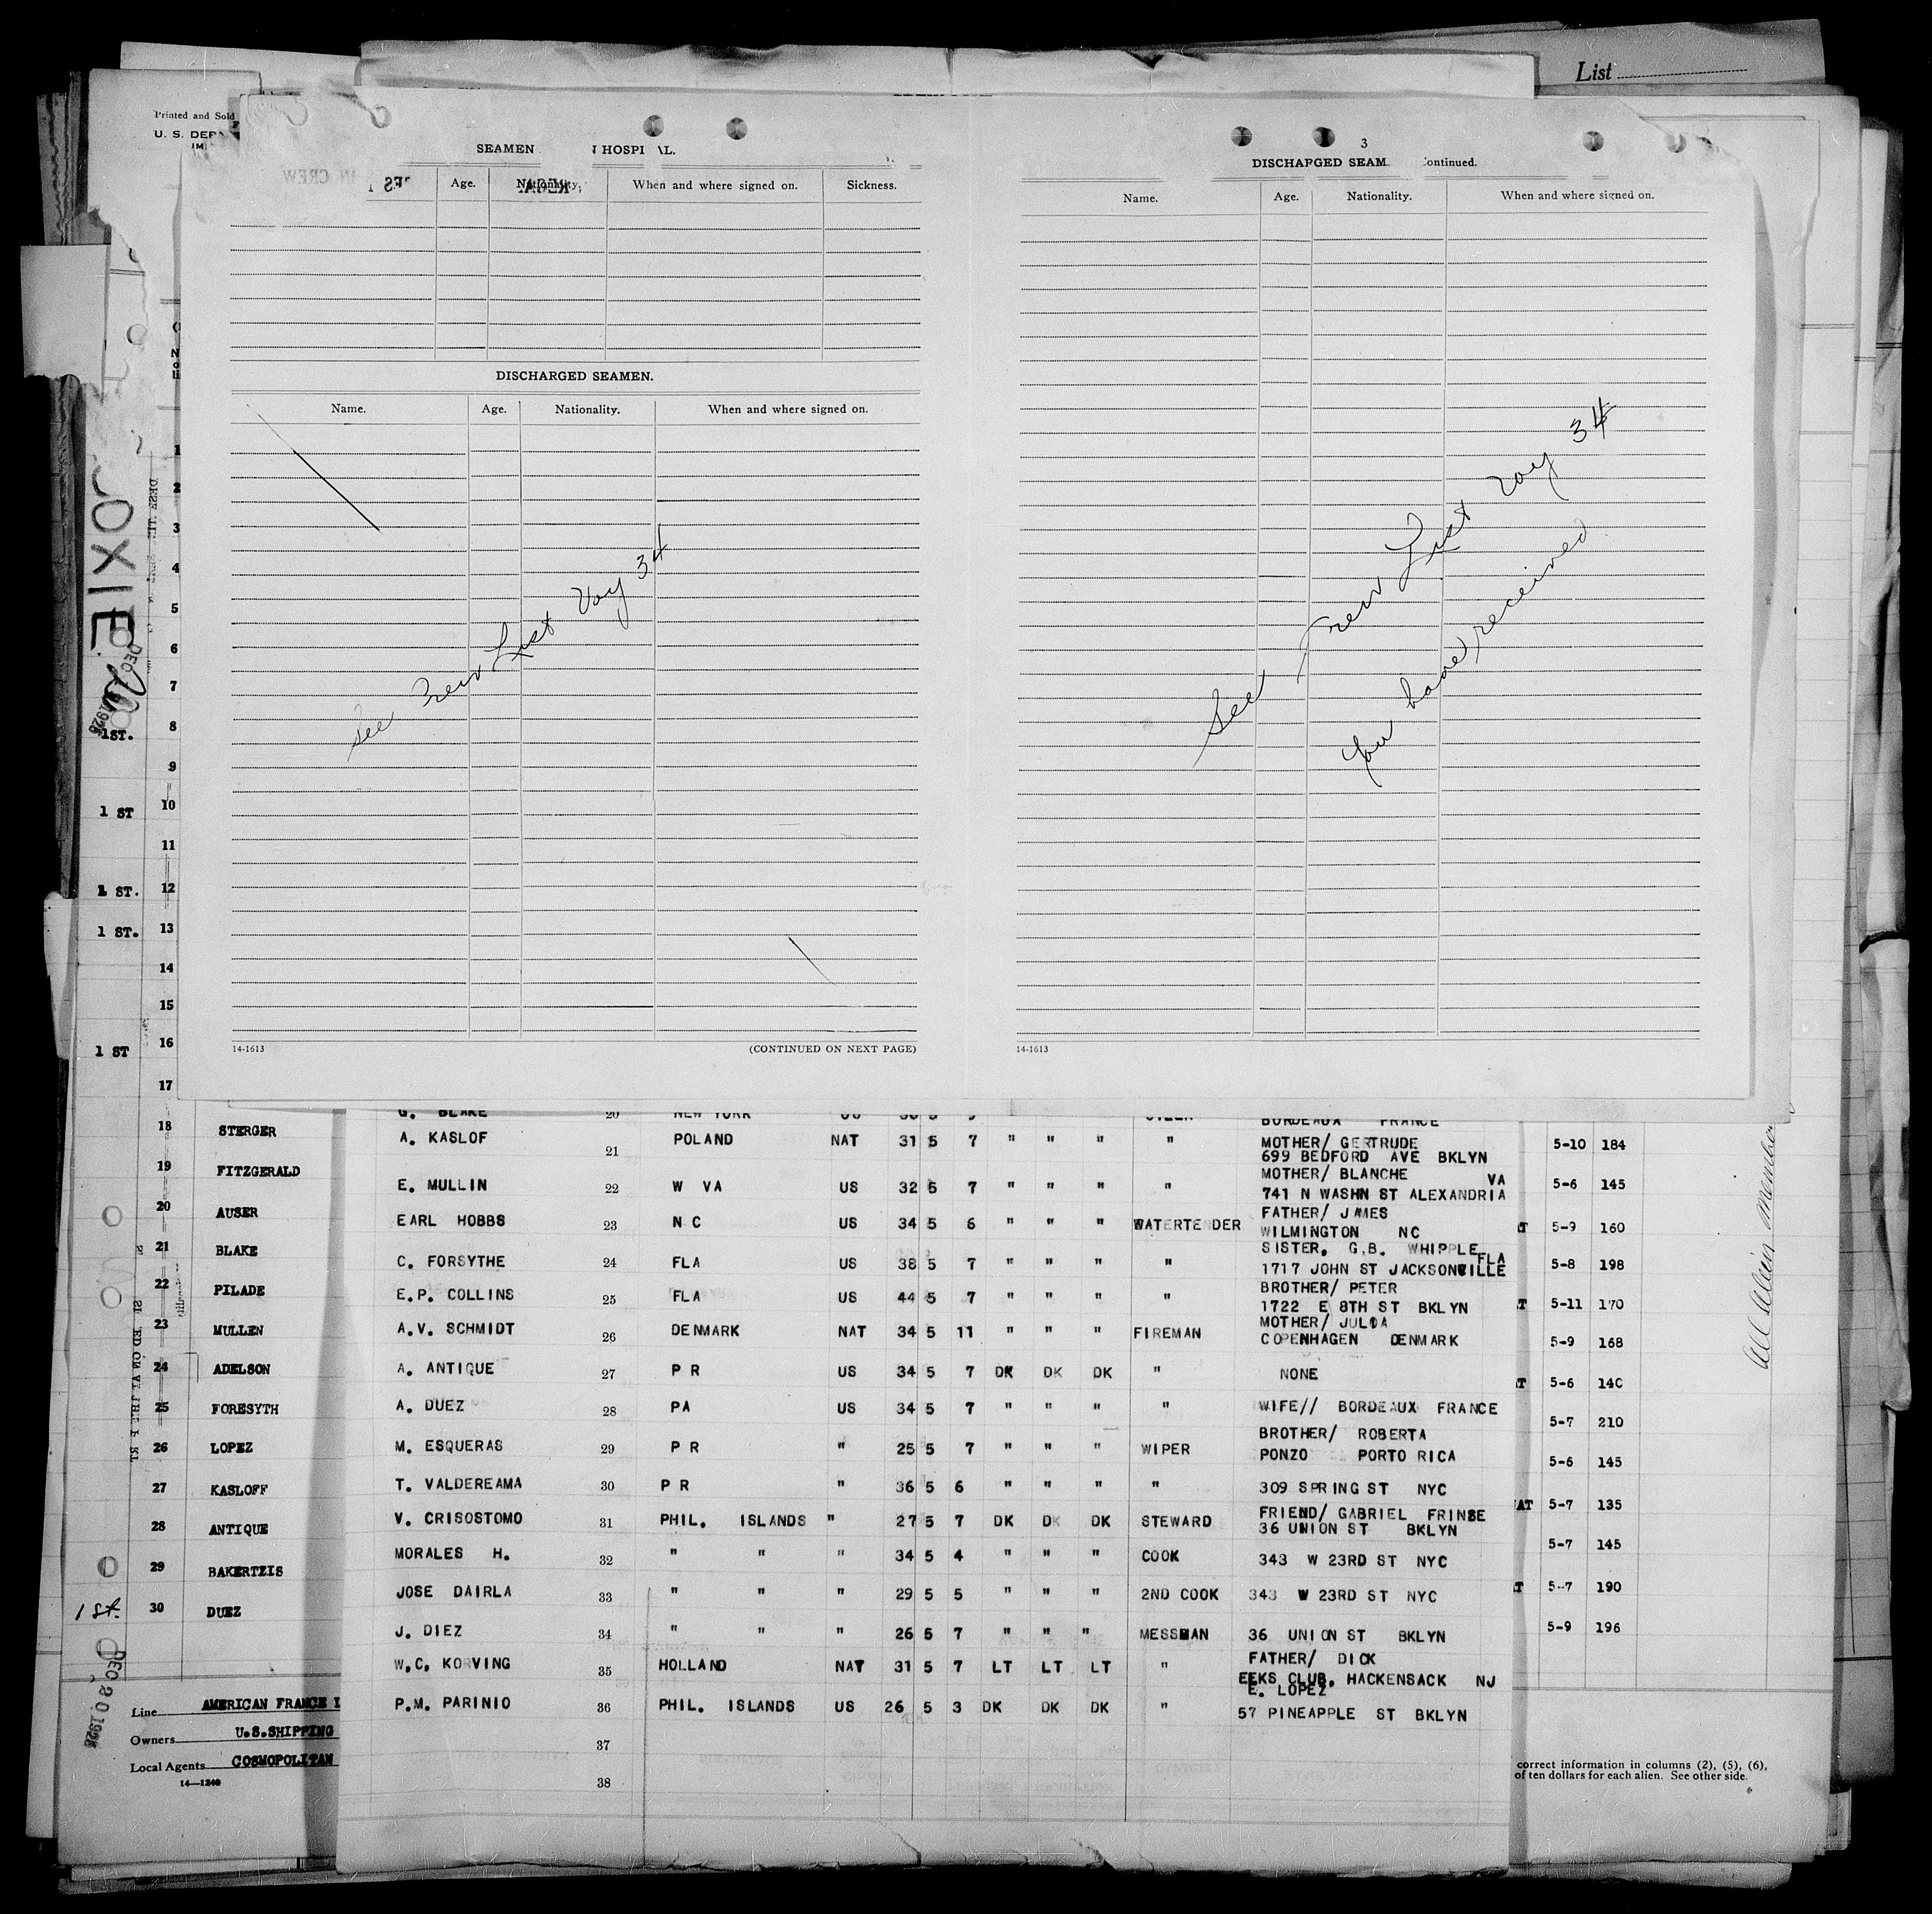 List
Printed and Sold
U. S. DEPA
IM.
SEAMEN HOSPI AL.
Age. Nationality. When and where signed on. Sickness.
DISCHARGED SEAMEN.
Name. Age. Nationality. When and where signed on.
See Crew List Voy 34
14-1613 (CONTINUED ON NEXT PAGE)
3
DISCHARGED SEAM ontinued.
Name. Age. Nationality. When and where signed on.
See Crew List Voy 34
You have received
14-1613
1
2
3
4
5
6
7
1ST. 8
9
1 ST 10
11
1 ST. 12
1 ST. 13
14
15
1 ST 16
17
18 STERGER
19 FITZGERALD
20 AUSER
21 BLAKE
22 PILADE
23 MULLEN
24 ADELSON
25 FORESYTH
26 LOPEZ
27 KASLOFF
28 ANTIQUE
29 BAKERTZIS
1 st. 30 DUEZ
Line AMERICAN FRANCE L
Owners U.S.SHIPPING
Local Agents COSMOPOLITAN
14—1240
G. BLAKE 20 NEW YORK US
BORDEAUX FRANCE
A. KASLOF 21 POLAND NAT 31 5 7 " " " " MOTHER/ GERTRUDE
699 BEDFORD AVE BKLYN
E. MULLIN 22 W VA US 32 5 7 " " " " MOTHER/ BLANCHE VA
741 N WASHN ST ALEXANDRIA
EARL HOBBS 23 N C US 34 5 6 " " " WATERTENDER FATHER/ JAMES
WILMINGTON NC
C. FORSYTHE 24 FLA US 38 5 7 " " " " SISTER, G.B. WHIPPLE FLA
1717 JOHN ST JACKSONVILLE
E.P. COLLINS 25 FLA US 44 5 7 " " " " BROTHER/ PETER
1722 E 8TH ST BKLYN
A.V. SCHMIDT 26 DENMARK NAT 34 5 11 " " " FIREMAN MOTHER/ JULIA
COPENHAGEN DENMARK
A. ANTIQUE 27 P R US 34 5 7 DK DK DK " NONE
A. DUEZ 28 PA US 34 5 7 " " " " WIFE// BORDEAUX FRANCE
M. ESQUERAS 29 P R " 25 5 7 " " " WIPER BROTHER/ ROBERTA
PONZO PORTO RICA
T. VALDEREAMA 30 P R " 36 5 6 " " " " 309 SPRING ST NYC
V. CRISOSTOMO 31 PHIL. ISLANDS " 27 5 7 DK DK DK STEWARD FRIEND/ GABRIEL FRINSE
36 UNION ST BKLYN
MORALES H. 32 " " " 34 5 4 " " " COOK 343 W 23RD ST NYC
JOSE DAIRLA 33 " " " 29 5 5 " " " 2ND COOK 343 W 23RD ST NYC
J. DIEZ 34 " " " 26 5 7 " " " MESSMAN 36 UNION ST BKLYN
W.C. KORVING 35 HOLLAND NAT 31 5 7 LT LT LT " FATHER/ DICK
EEKS CLUB, HACKENSACK NJ
P.M. PARINIO 36 PHIL. ISLANDS US 26 5 3 DK DK DK " E. LOPEZ
57 PINEAPPLE ST BKLYN
37
38
5-10 184
5-6 145
5-9 160
5-8 198
5-11 170
5-9 168
5-6 140
5-7 210
5-6 145
AT 5-7 135
5-7 145
5-7 190
5-9 196
correct information in columns (2), (5), (6),
of ten dollars for each alien. See other side.